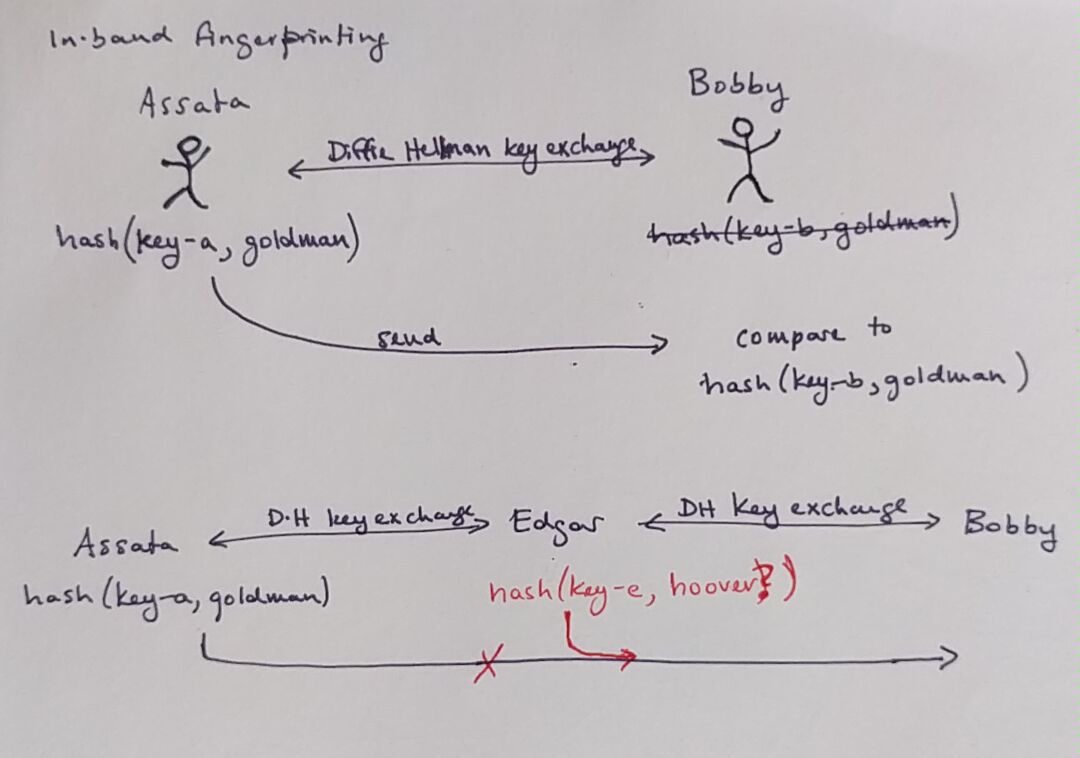 In-band Fingerprinting
Assata
Bobby
Diffie Hellman key exchange
hash(key-a, goldman)
hash(key-b, goldman)
send
compare to
hash(key-b, goldman)
D-H key exchange
DH Key exchange
Assata
Edgar
Bobby
hash(key-a, goldman)
hash(key-e, hoover?)